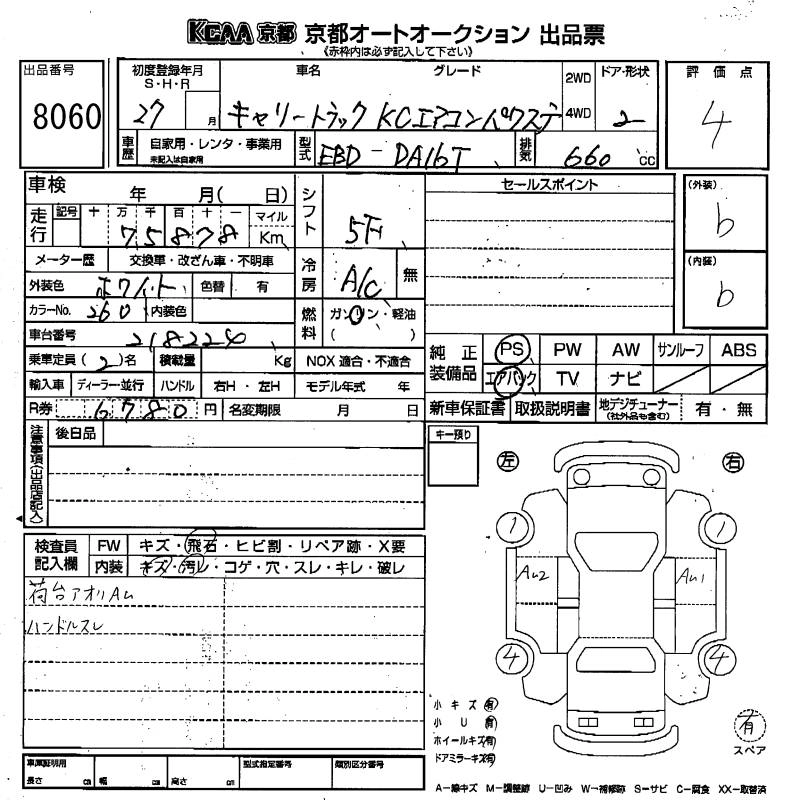 KCAA 京都 京都オートオークション 出品票
(赤枠内は必ず記入して下さい)
出品番号
8060
初度登録年月
S・H・R
27 月
車名 グレード
キャリートラック KCエアコンパワステ
2WD
4WD
ドア・形状
2
評価点
4
車歴
自家用・レンタ・事業用
未記入は自家用
型式
EBD-DA16T
排気
660 CC
車検 年 月( 日)
走行
記号 十 万 千 百 十 一 マイル
75878 Km
メーター歴 交換車・改ざん車・不明車
外装色 ホワイト 色替 有
カラーNo. 260 内装色
車台番号 218224
乗車定員 (2)名 積載量 Kg NOX 適合・不適合
輸入車 ディーラー・並行 ハンドル 右H・左H モデル年式 年
R券 6780 円 名変期限 月 日
シフト
5F
冷房
A/C 無
燃料
ガソリン・軽油
( )
セールスポイント
(外装)
b
(内装)
b
純正装備品
PS PW AW サンルーフ ABS
エアバック TV ナビ
新車保証書 取扱説明書 地デジチューナー(社外品も含む) 有・無
注意事項(出品店記入)
後日品
キー預り
左 右
検査員記入欄
FW キズ・飛石・ヒビ割・リペア跡・X要
内装 キズ・汚レ・コゲ・穴・スレ・キレ・破レ
荷台アオリAU
ハンドルスレ
1 1
AU2 AU1
4 4
小キズ(有)
小U(有)
ホイールキズ(有)
ドアミラーキズ(有)
有
スペア
車庫証明用
長さ cm 幅 cm 高さ cm
型式指定番号 類別区分番号
A-線キズ M-調整跡 U-凹み W-補修跡 S-サビ C-腐食 XX-取替済